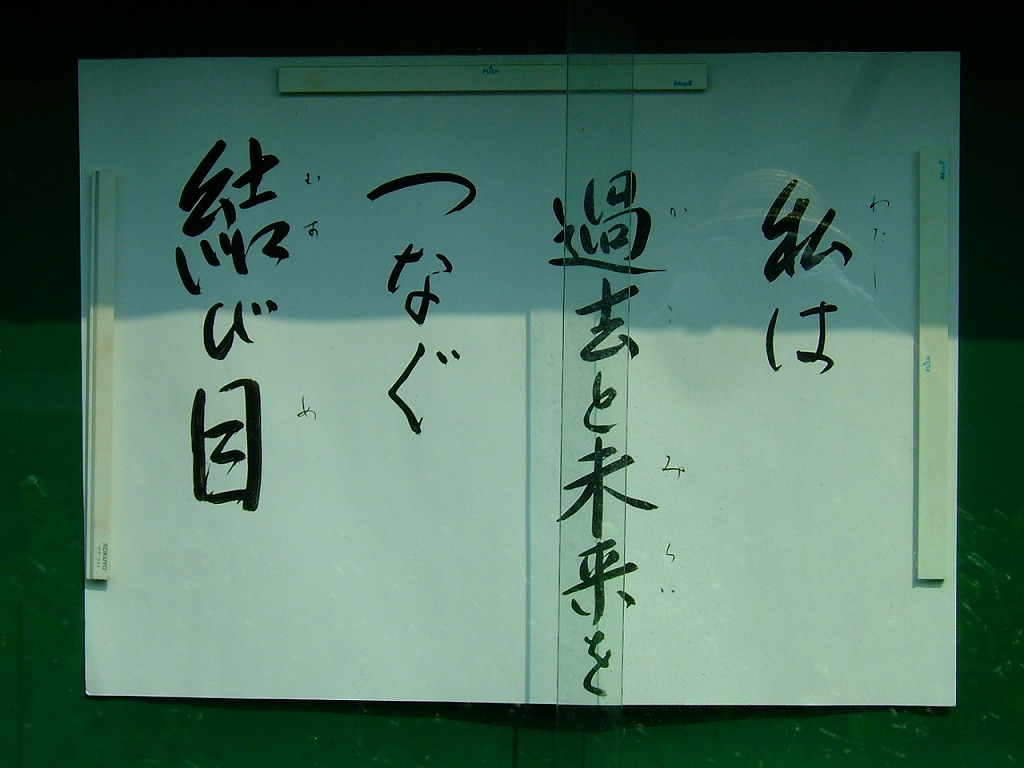 私は
わたし
過去と未来を
かこ
みらい
つなぐ
結び目
むす
め
PUSH
PUSH
KOKUYO